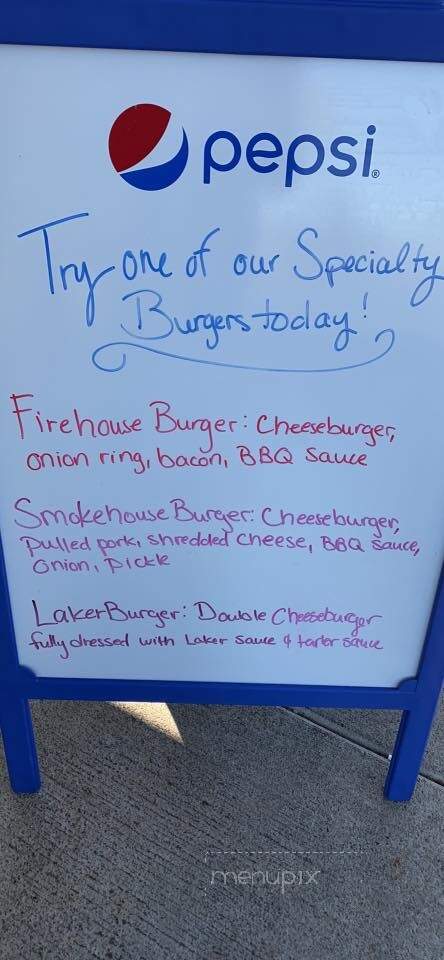 pepsi®
Try one of our Specialty
Burgers today!
Firehouse Burger: Cheeseburger,
onion ring, bacon, BBQ Sauce
Smokehouse Burger: Cheeseburger,
pulled pork, shredded cheese, BBQ sauce,
Onion, pickle
Laker Burger: Double Cheeseburger
fully dressed with Laker sauce & tarter sauce
menupix